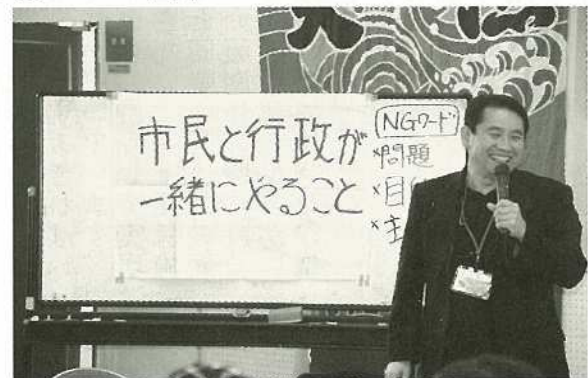 市民と行政が
一緒にやること
NGワード
×問題
×目
×主